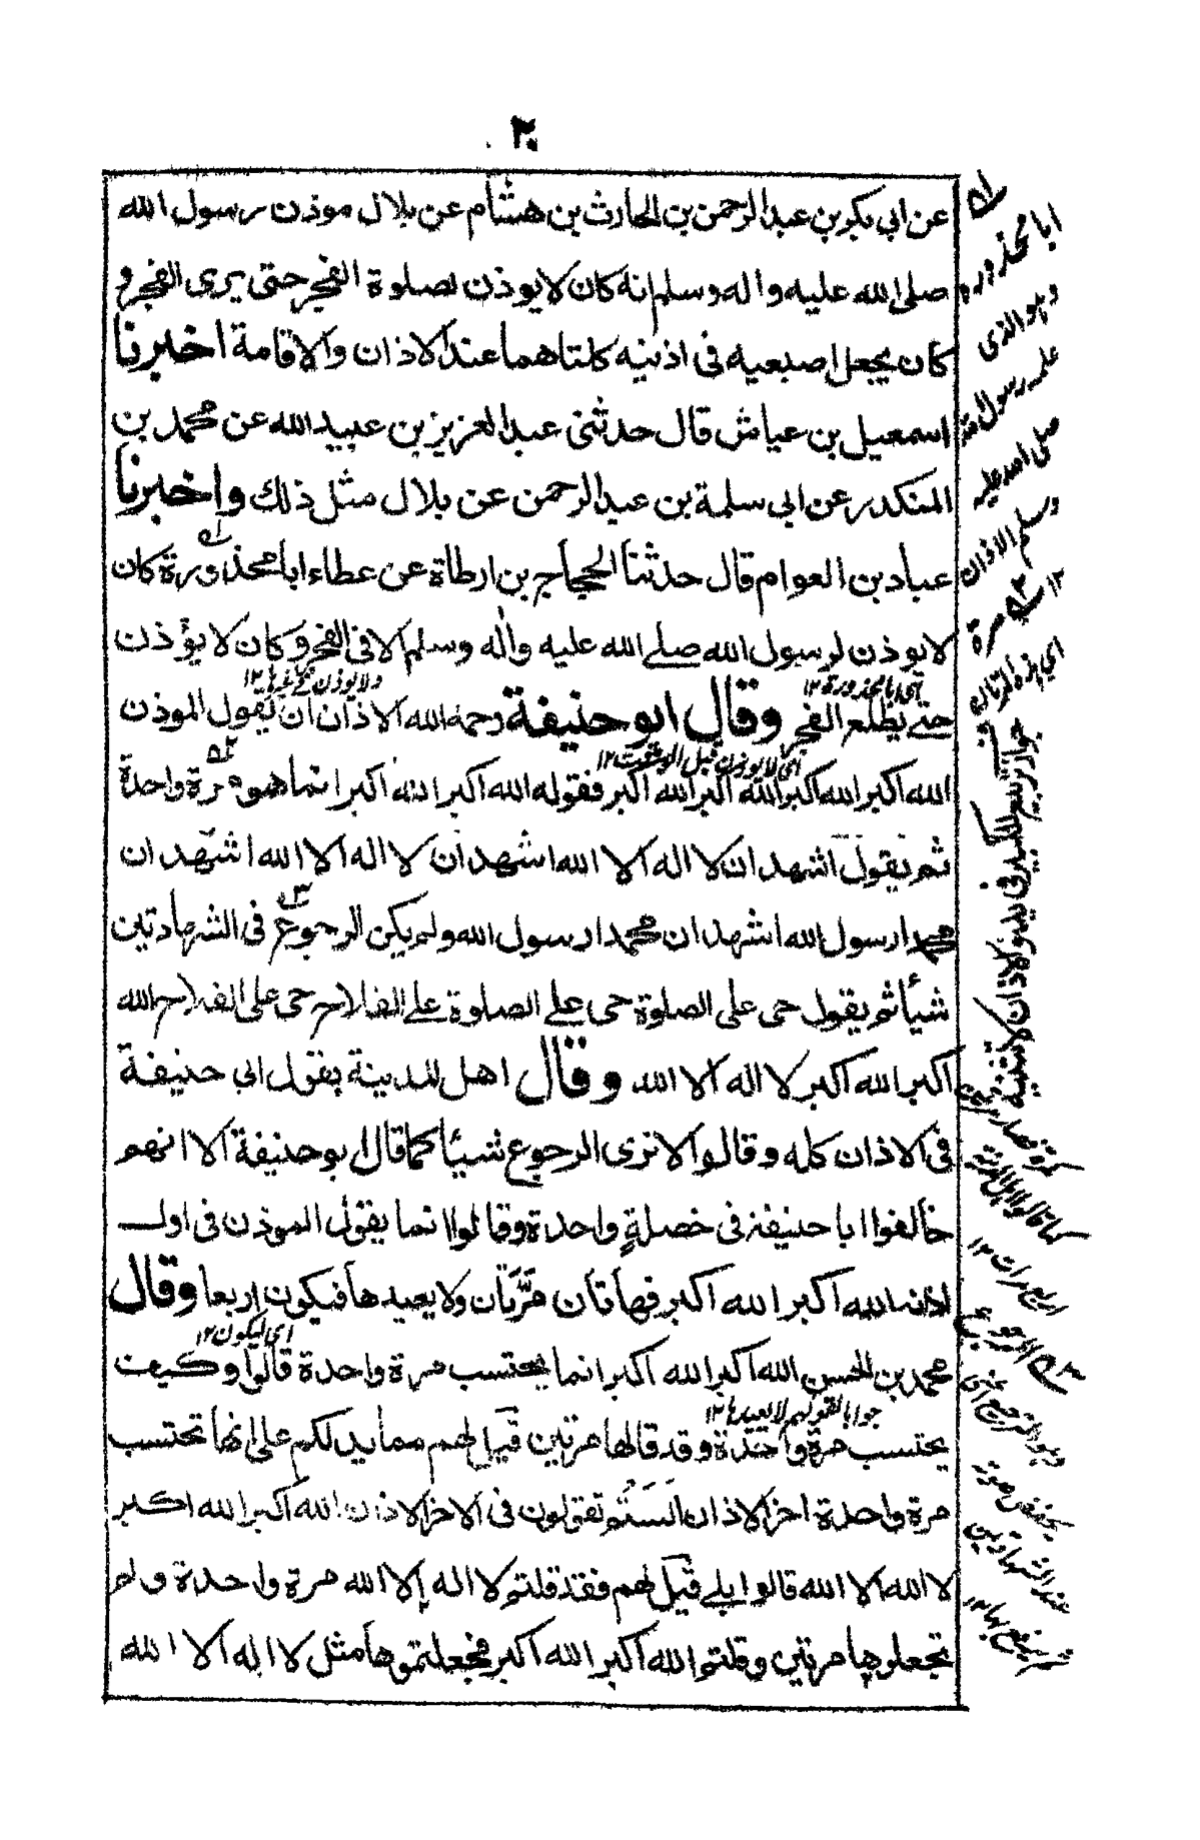 ٢٠
عن ابي بكر بن عبد الرحمن بن الحارث بن هشام عن بلال موذن رسول الله
صلى الله عليه واله وسلم انه كان لا يوذن لصلوة الفجر حتى يرى الفجر و
كان يجعل اصبعيه فى اذنيه كلتاهما عند الاذان والاقامة اخبرنا
اسمعيل بن عياش قال حدثنى عبد العزيز بن عبيد الله عن محمد بن
المنكدر عن ابى سلمة بن عبد الرحمن عن بلال مثل ذلك واخبرنا
عباد بن العوام قال حدثنا الحجاج بن ارطاة عن عطاء ابا محذورة كان
لا يوذن لرسول الله صلے الله عليه واله وسلم الا فى الفجر وكان لا يؤذن
اى ابا محذورة ١٢
حتے يطلع الفجر وقال ابو حنيفة رحمه الله الاذان ان يقول الموذن
الله اكبر الله اكبر الله اكبر الله اكبر فقوله الله اكبر الله اكبر انما هو مرة واحدة
ثم يقول اشهد ان لا اله الا الله اشهد ان لا اله الا الله اشهد ان
محمدا رسول الله اشهد ان محمدا رسول الله ولم يكن الرجوع فى الشهادتين
شيأ ثم يقول حى على الصلوة حى علے الصلوة علے الفلاح حى على الفلاح الله
اكبر الله اكبر لا اله الا الله وقال اهل المدينة بقول ابى حنيفة
فى الاذان كله وقالوا لا نرى الرجوع شيئا كما قال ابو حنيفة الا انهم
خالفوا ابا حنيفة فى خصلةٍ واحدة وقالوا انما يقول الموذن فى اول
اذانه الله اكبر الله اكبر فهاتان مرَّتان ولا يعيدها فيكون اربعا وقال
اى ليكون ١٢
محمد بن الحسن الله اكبر الله اكبر انما يحتسب مرة واحدة قالوا وكيف
جواب لقولهم لا يعيدها ١٢
يحتسب مرة واحدة وقد قالها مرتين قيل لهم مما يدلكم على انها تحتسب
مرة واحدة اخر الاذان الستم تقولون فى الاخر الاذان الله اكبر الله اكبر
لا الله الا الله قالوا بلے قيل لهم فقد قلتم لا اله إلا الله مرة واحدة ولم
تجعلوها مرتين وقلتم الله اكبر الله اكبر فجعلتموها مثل لا اله الا الله
ابا محذورة
وهو الذى
علمه رسول الله
صلى الله عليه
وسلم الاذان
١٢
جواز تربيع التكبير فى بدو الاذان لا تثنية
كما قالوا اهل المدينة
اربع مرات ١٢